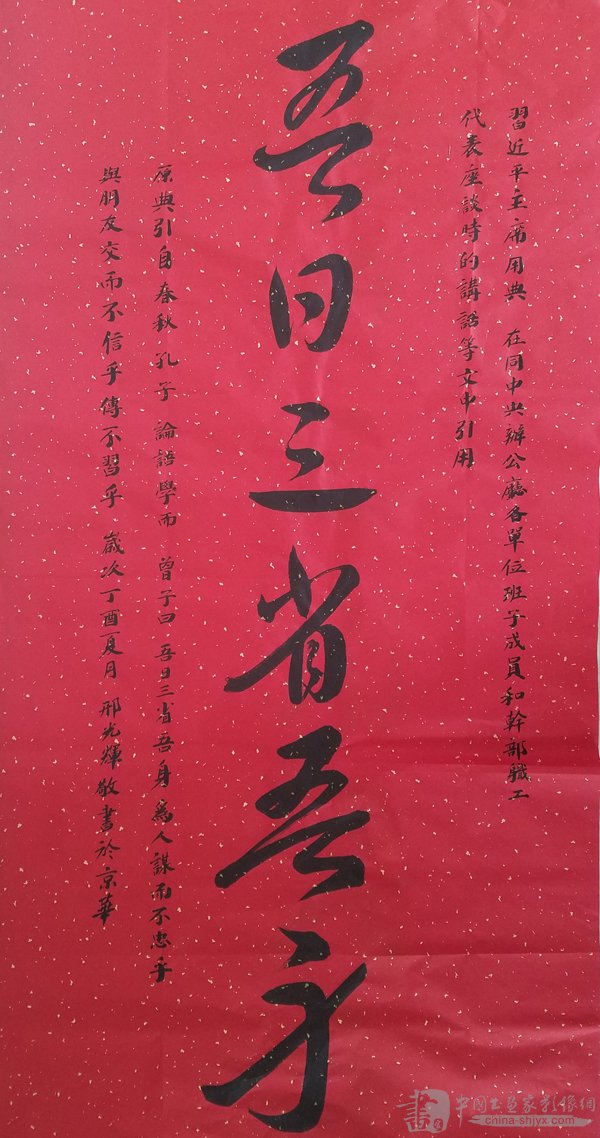 習近平主席用典 在同中央辦公廳各單位班子成員和幹部職工
代表座談時的講話等文中引用
吾日三省吾身
原典引自春秋 孔子 論語學而 曾子曰 吾日三省吾身 為人謀而不忠乎
與朋友交而不信乎傳不習乎 歲次丁酉夏月 邢光輝敬書於京華
中国书画家影像網
china-shjyx.com